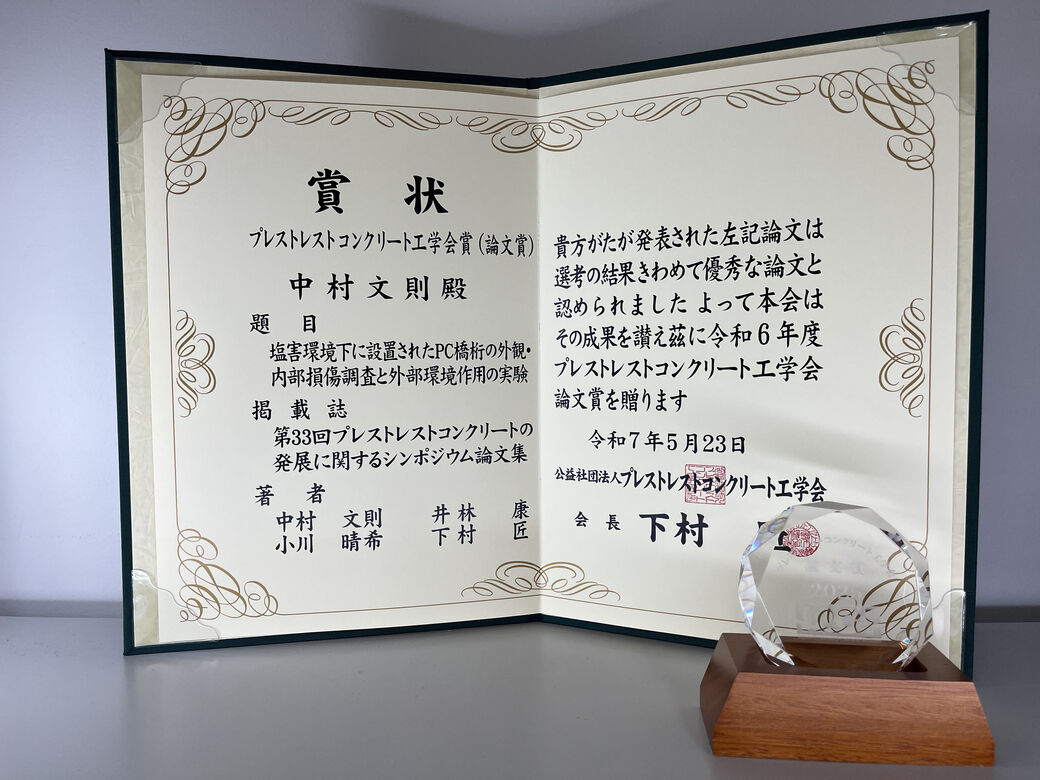 賞状
プレストレストコンクリート工学会賞(論文賞)
中村文則殿
題目
塩害環境下に設置されたPC橋桁の外観・
内部損傷調査と外部環境作用の実験
掲載誌
第33回プレストレストコンクリートの
発展に関するシンポジウム論文集
著者
中村 文則 井林 康
小川 晴希 下村 匠
貴方がたが発表された左記論文は
選考の結果きわめて優秀な論文と
認められました よって本会は
その成果を讃え茲に令和6年度
プレストレストコンクリート工学会
論文賞を贈ります
令和7年5月23日
公益社団法人プレストレストコンクリート工学会
会長 下村
コンクリート工